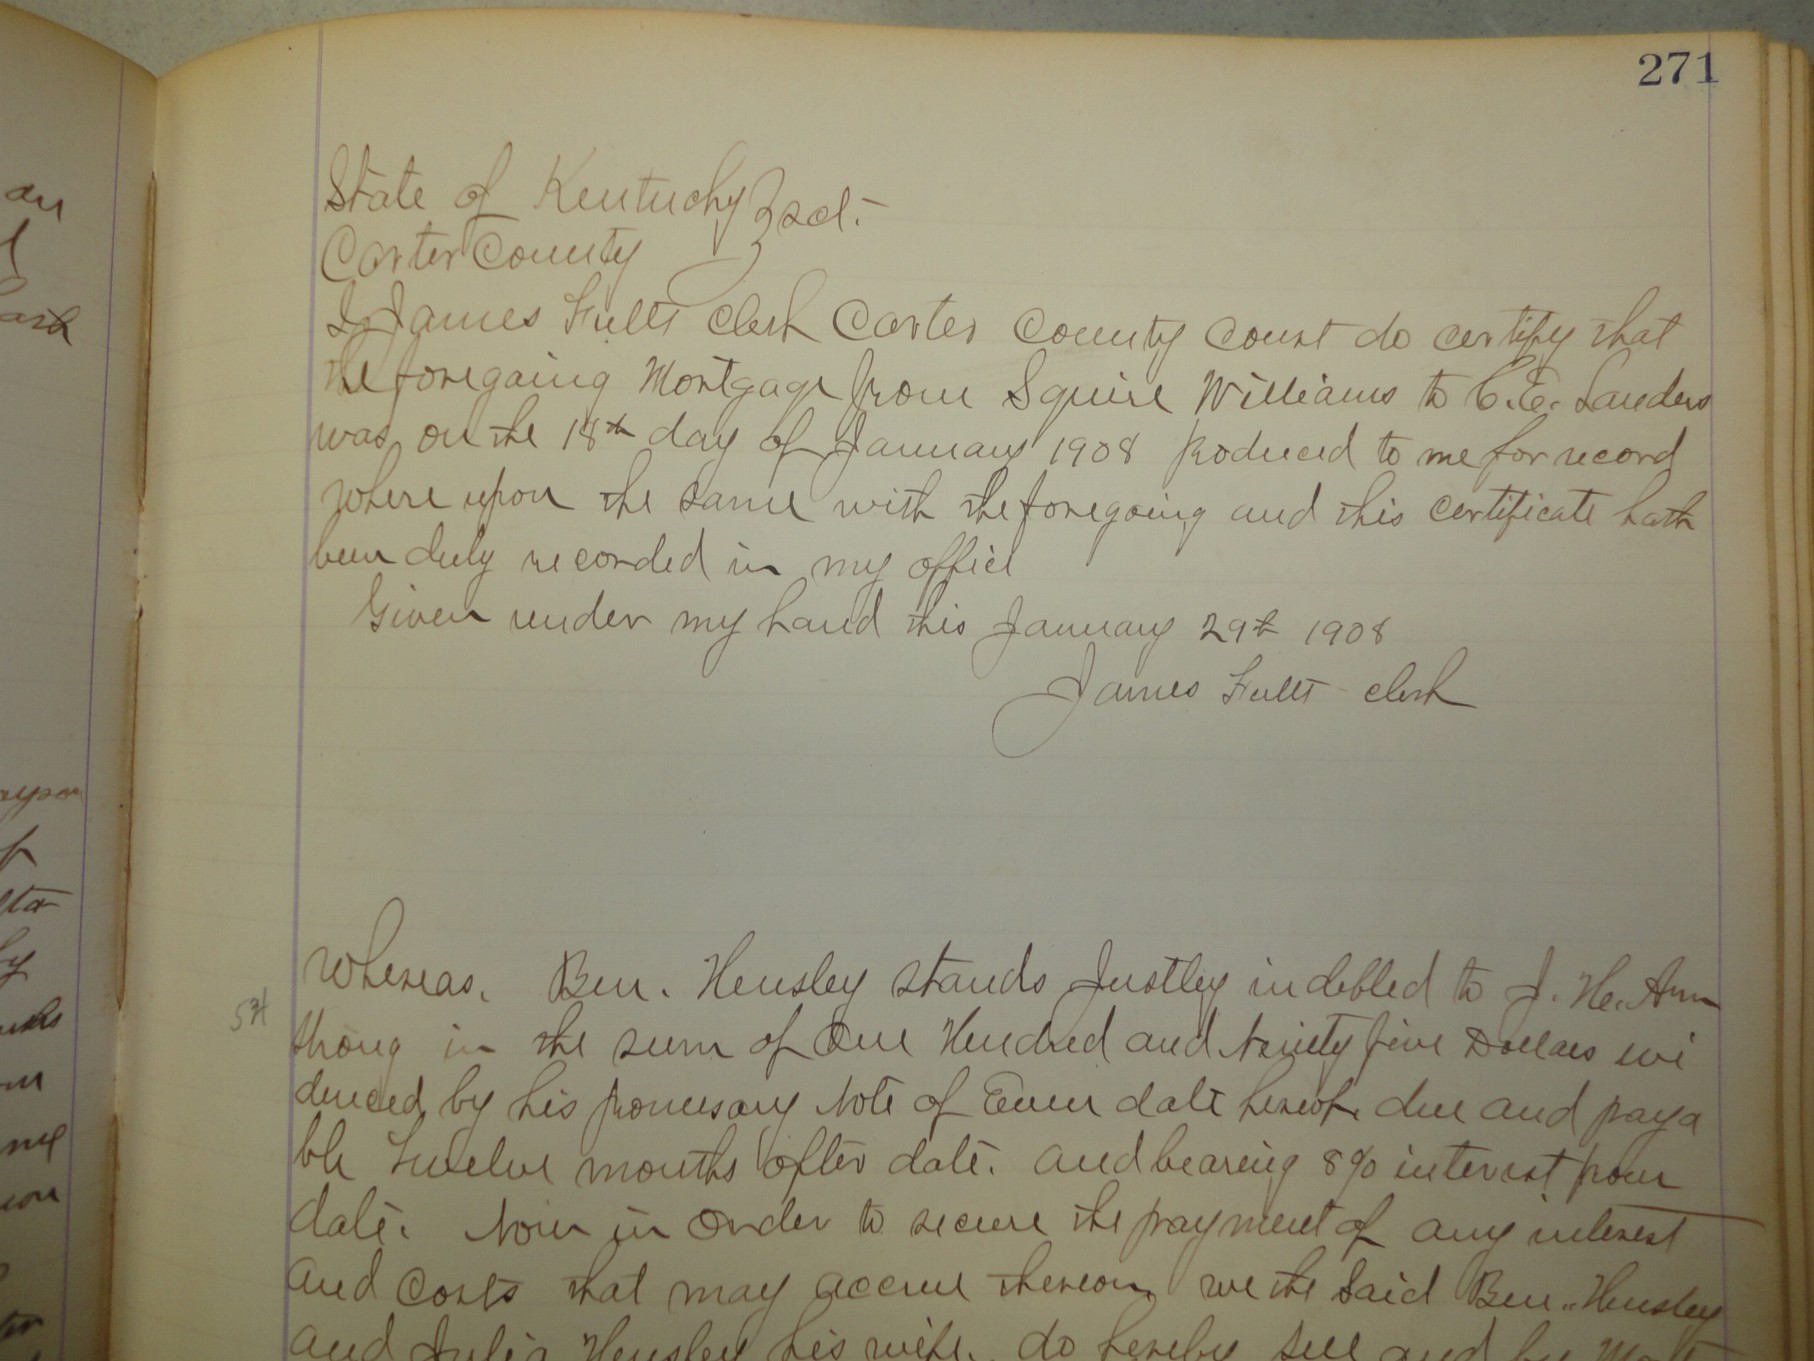 271
State of Kentucky } sct.
Carter County
I James Fults Clerk Carter County Court do certify that
the foregoing Mortgage from Squire Williams to C. E. Sanders
was on the 18th day of January 1908 produced to me for record
where upon the same with the foregoing and this certificate hath
been duly recorded in my office
Given under my hand this January 29th 1908
James Fults clerk
Whereas. Ben. Hensley stands Justley indebled to J. H. Arm
strong in the sum of One Hundred and Ninety five Dollars evi
denced by his promisary Note of Even date hereof due and paya
ble Twelve months after date. and bearing 8% interest from
date. Now in order to secure the payment of any interest
and Costs that may accrue thereon we the Said Ben. Hensley
and Julia Hensley his wife. do hereby sell and by